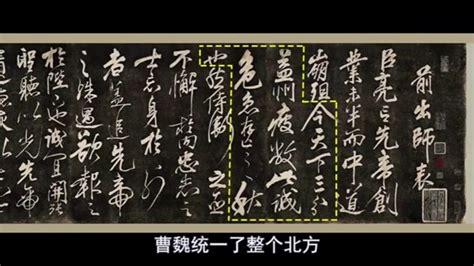 前出師表
臣亮言先帝創
業未半而中道
崩殂今天下三分
益州疲敝此誠
危急存亡之秋
也然侍衛之臣
不懈於內忠志之
士忘身於外
者蓋追先帝
之殊遇欲報之
於陛下也誠宜開張
聖聽以光先帝
曹魏统一了整个北方